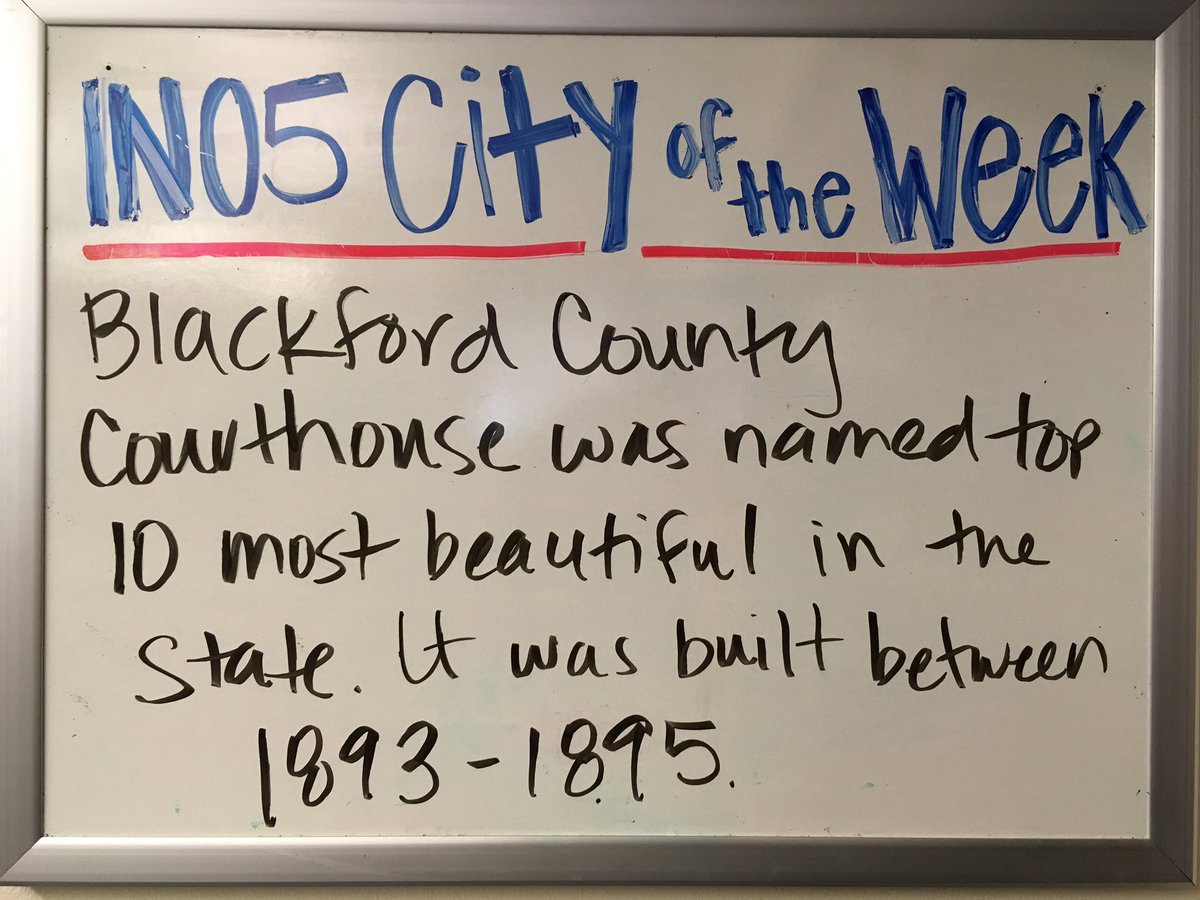 IN05 City of the Week
Blackford County
Courthouse was named top
10 most beautiful in the
State. It was built between
1893-1895.